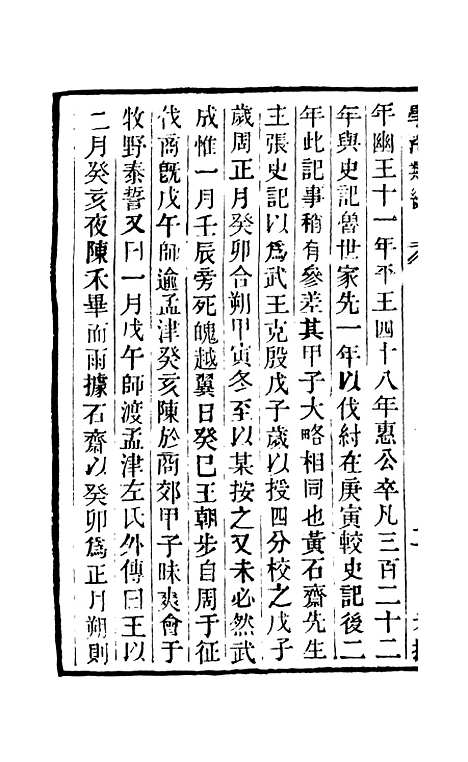 年幽王十一年平王四十八年惠公卒凡三百二十二
年與史記魯世家先一年以伐紂在庚寅較史記後二
年此記事稍有參差其甲子大略相同也黃石齋先生
主張史記以爲武王克殷戊子歲以授四分校之戊子
歲周正月癸卯合朔甲寅冬至以某按之又未必然武
成惟一月壬辰旁死魄越翼日癸巳王朝步自周于征
伐商旣戊午師逾孟津癸亥陳於商郊甲子昧爽會于
牧野泰誓又曰一月戊午師渡孟津左氏外傳曰王以
二月癸亥夜陳禾畢而雨據石齋以癸卯爲正月朔則